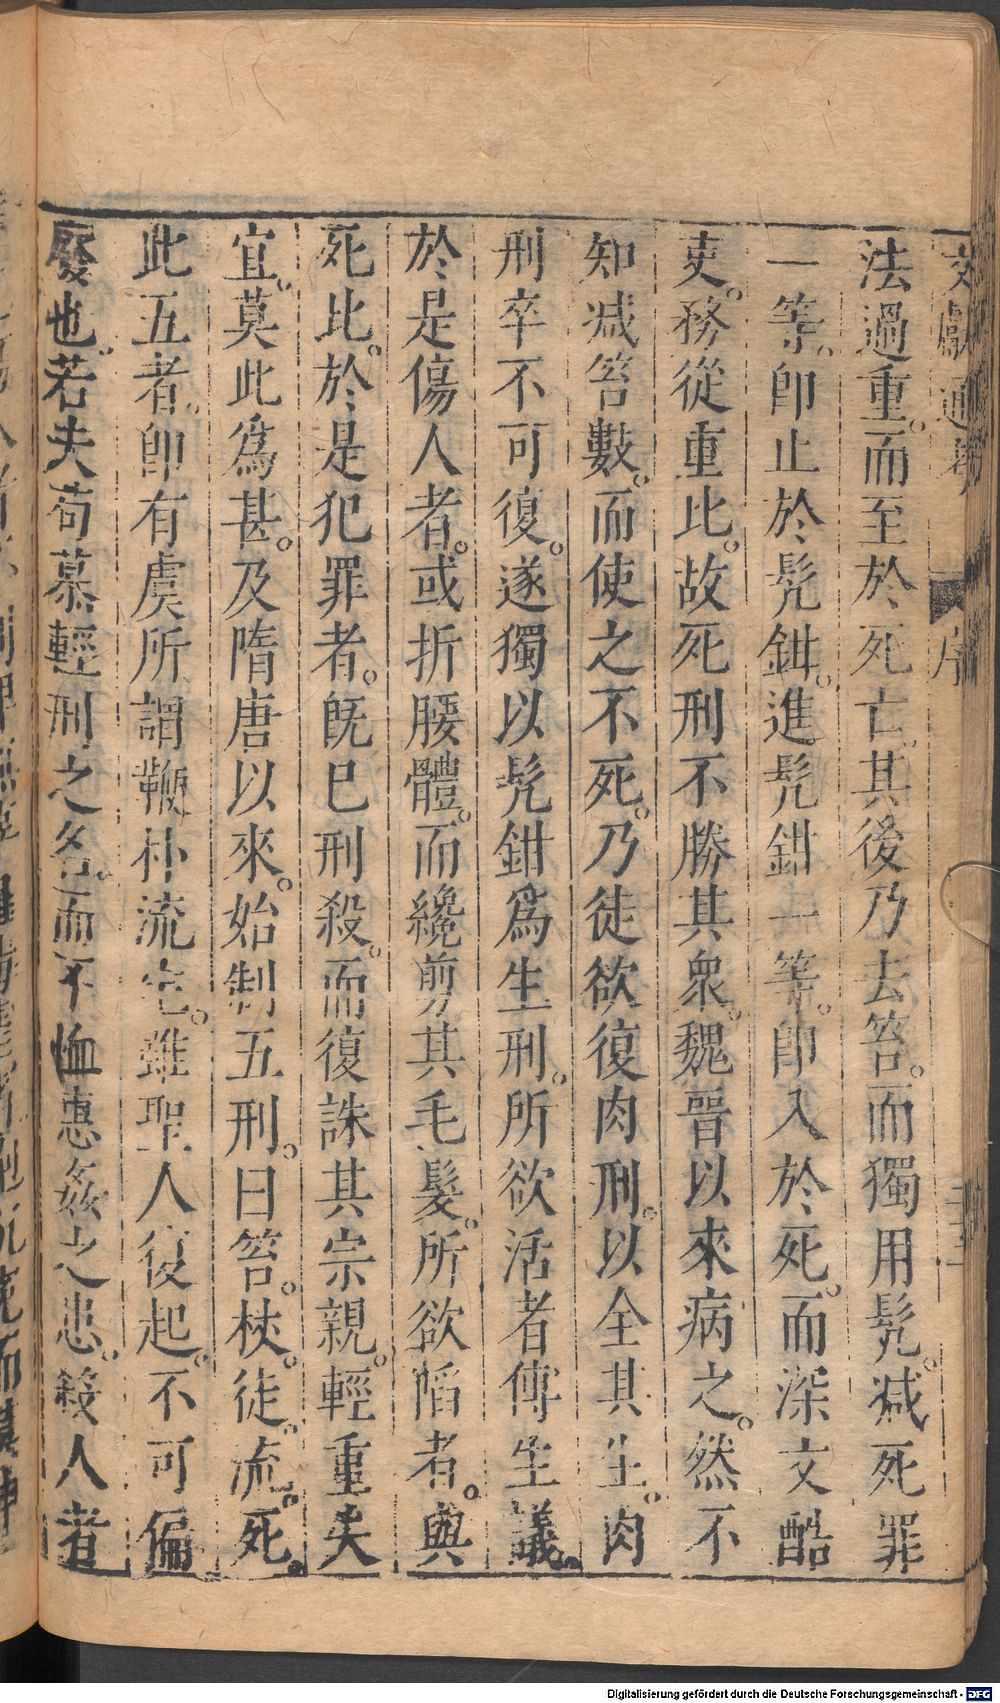 文獻通考 序
法過重。而至於死亡。其後乃去笞。而獨用髠。减死罪
一等。卽止於髠鉗。進髠鉗一等。卽入於死。而深文酷
吏。務從重比。故死刑不勝其衆。魏晉以來病之。然不
知减笞數。而使之不死。乃徒欲復肉刑。以全其生。肉
刑卒不可復。遂獨以髠鉗爲生刑。所欲活者傅生議。
於是傷人者。或折腰體。而纔剪其毛髮。所欲陷者。與
死比。於是犯罪者。旣巳刑殺。而復誅其宗親。輕重失
宜。莫此爲甚。及隋唐以來。始制五刑。曰笞。杖。徒。流。死。
此五者。卽有虞所謂鞭朴流宅。雖聖人復起。不可偏
廢也。若夫苟慕輕刑之名。而不恤惠姦之患。殺人者
Digitalisierung gefördert durch die Deutsche Forschungsgemeinschaft - DFG